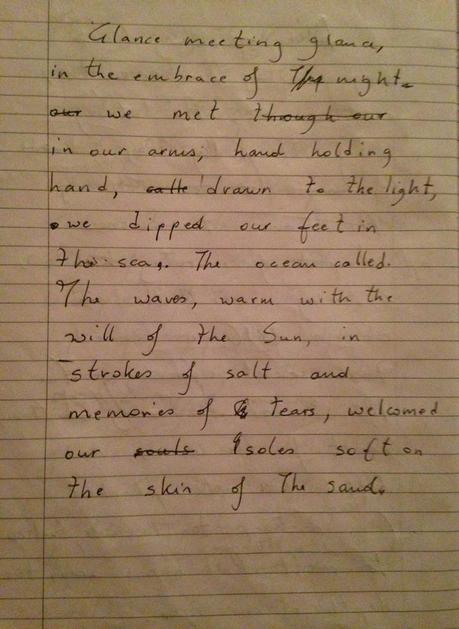 Glance meeting glance,
in the embrace of night.
our we met though our
in our arms; hand holding
hand, drawn to the light,
we dipped our feet in
the sea. The ocean called.
The waves, warm with the
will of the Sun, in
strokes of salt and
memories of Tears, welcomed
our souls soles soft on
the skin of The sand.